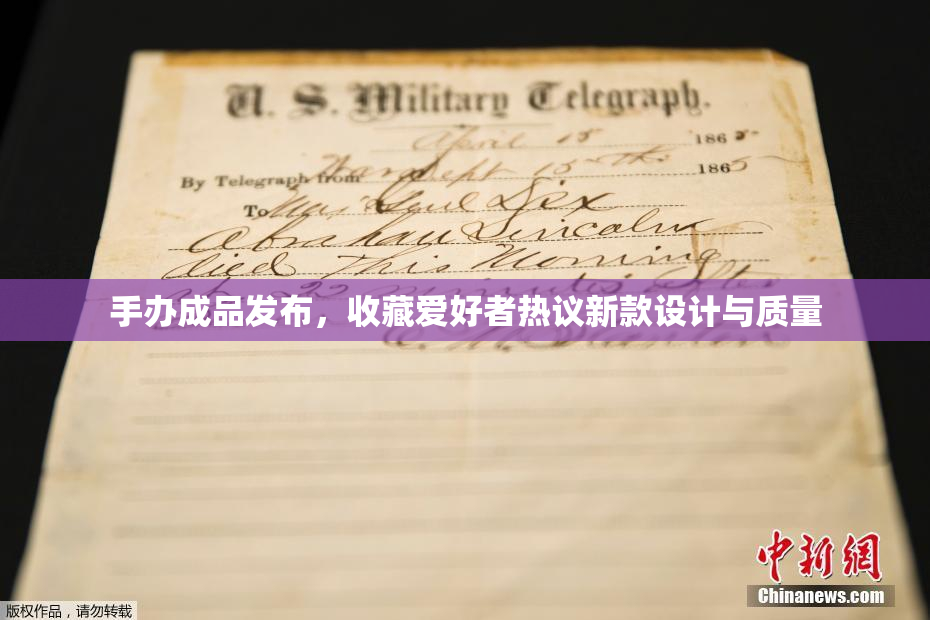 U. S. Military Telegraph.
April 15 1865
By Telegraph from War Dept 15th 1865
To Maj Genl Dix
Abraham Lincoln
died This Morning
22 minutes after
手办成品发布，收藏爱好者热议新款设计与质量
中新网
Chinanews.com
版权作品，请勿转载